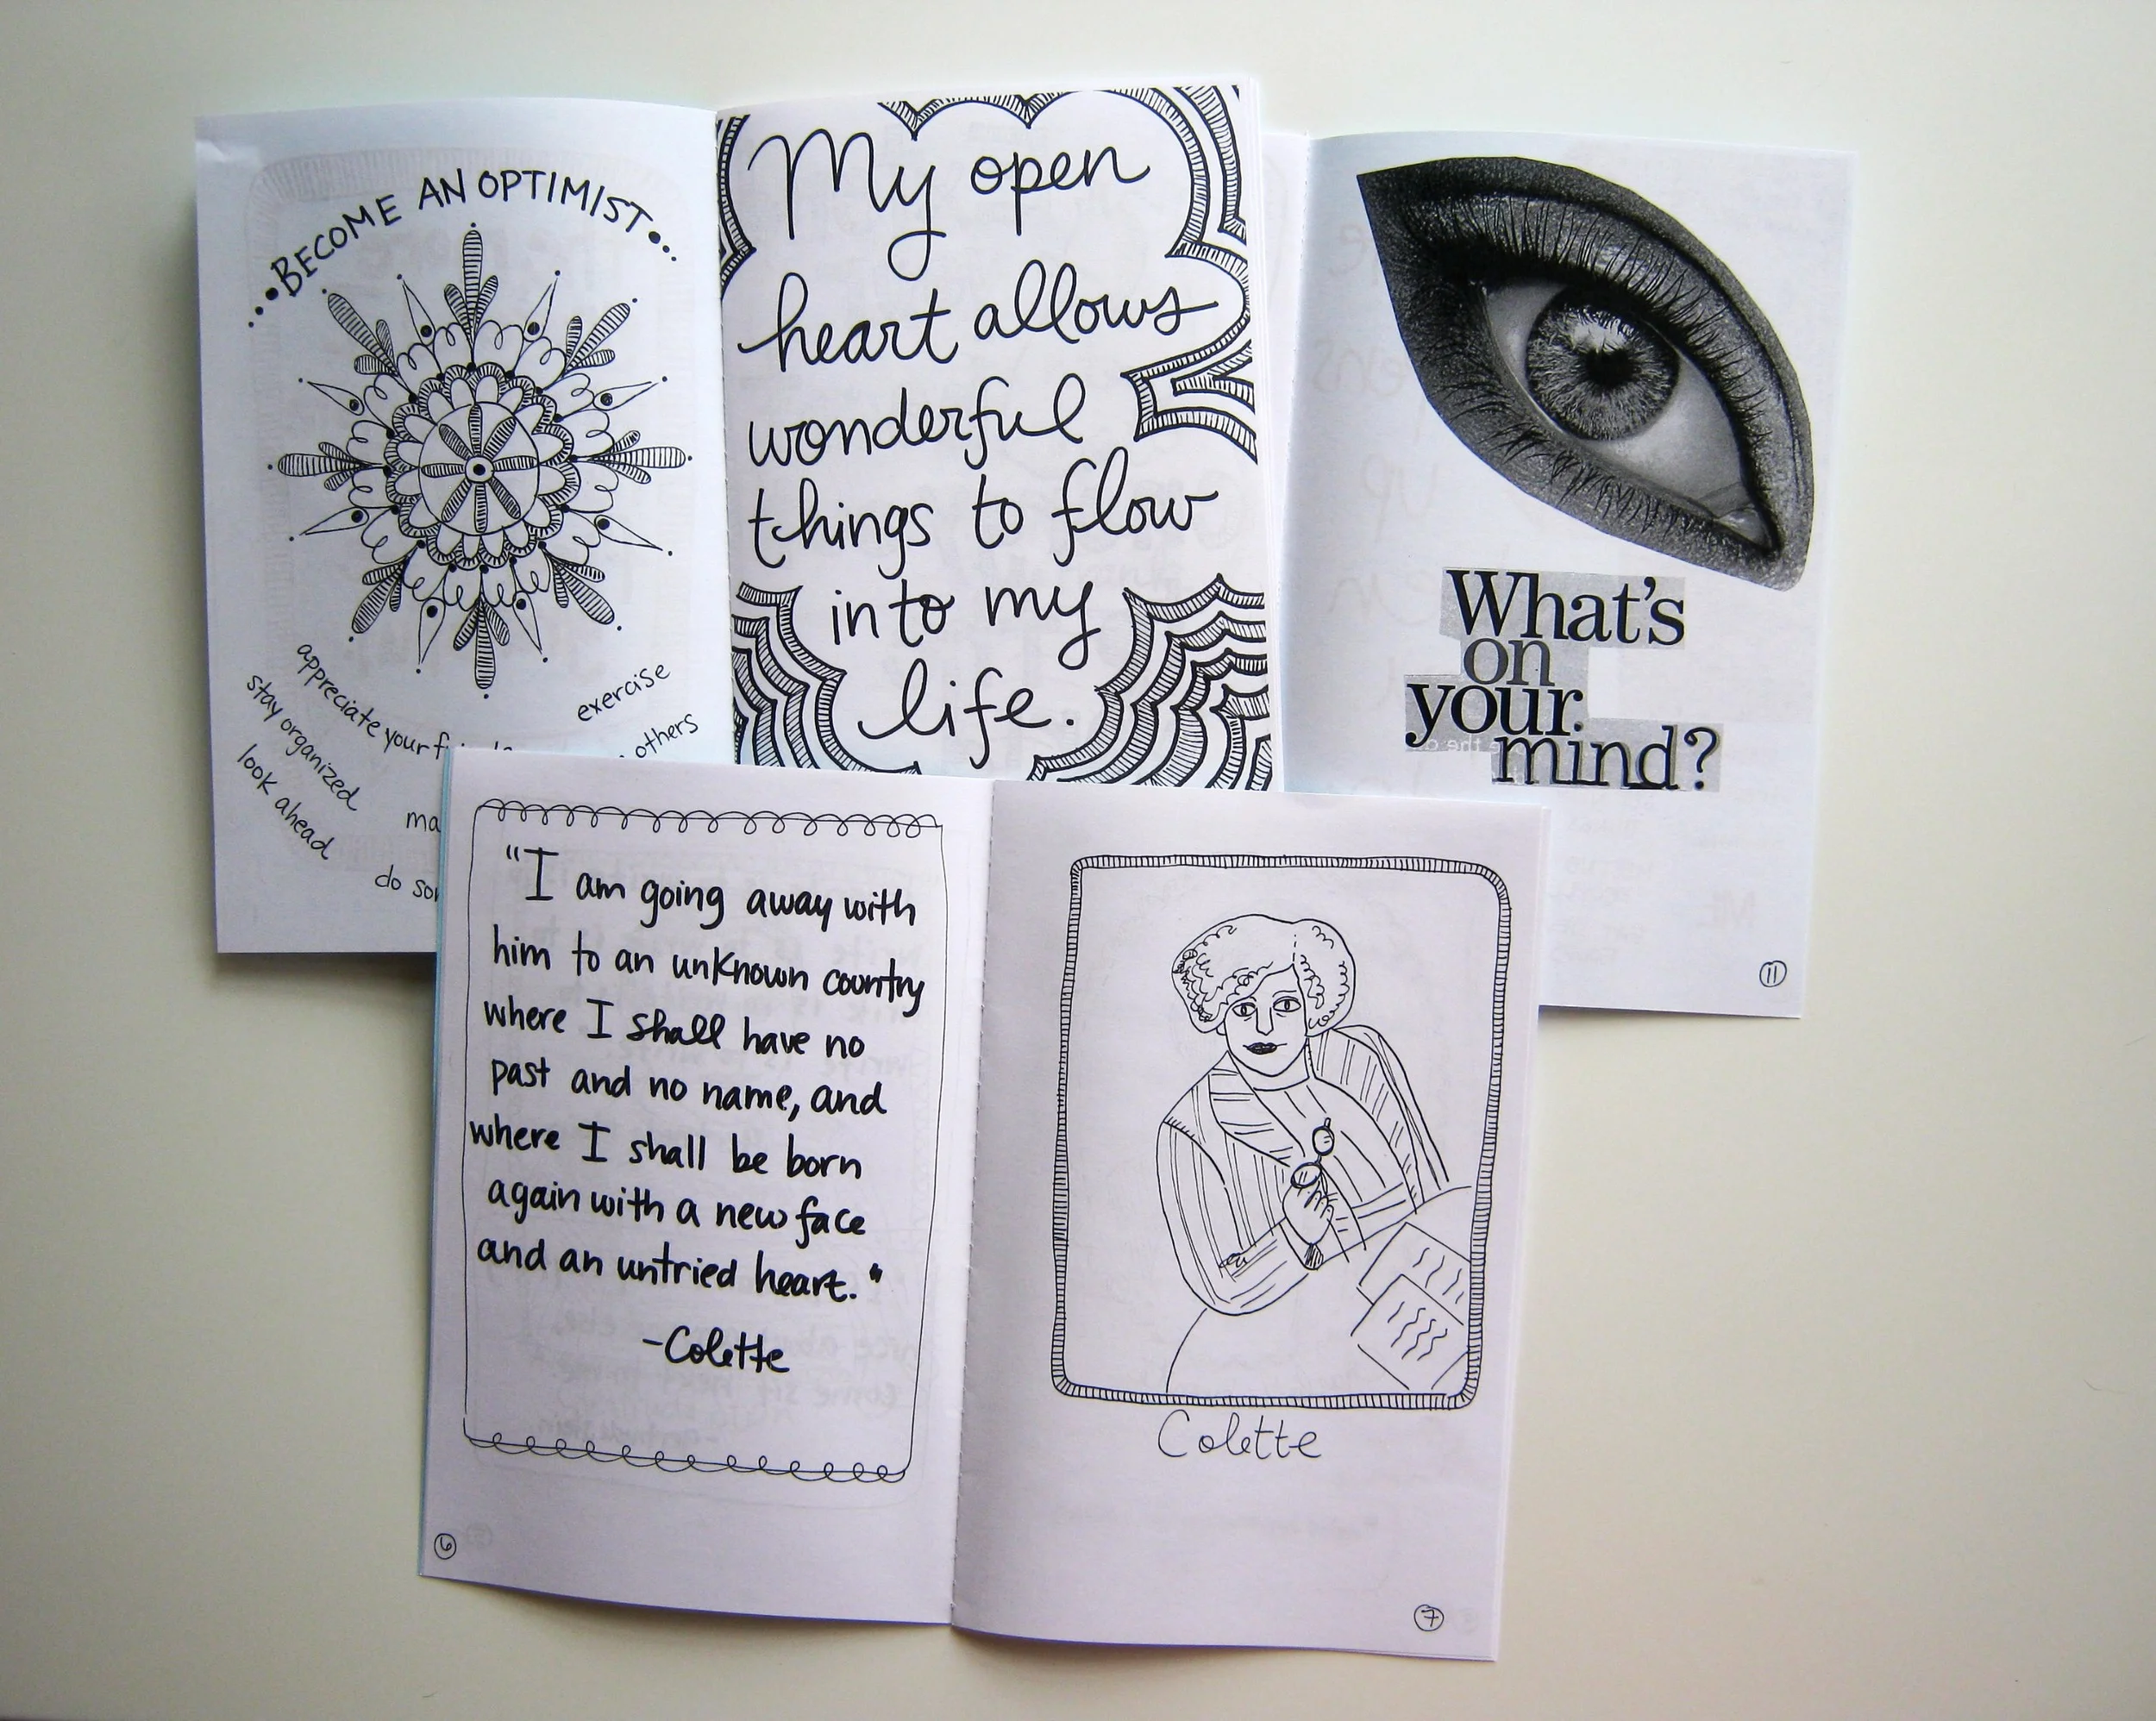 BECOME AN OPTIMIST
appreciate your
stay organized
look ahead
exercise
others
My open
heart allows
wonderful
things to flow
into my
life.
What's
on
your
mind?
11
"I am going away with
him to an unknown country
where I shall have no
past and no name, and
where I shall be born
again with a new face
and an untried heart."
-Colette
6
Colette
7